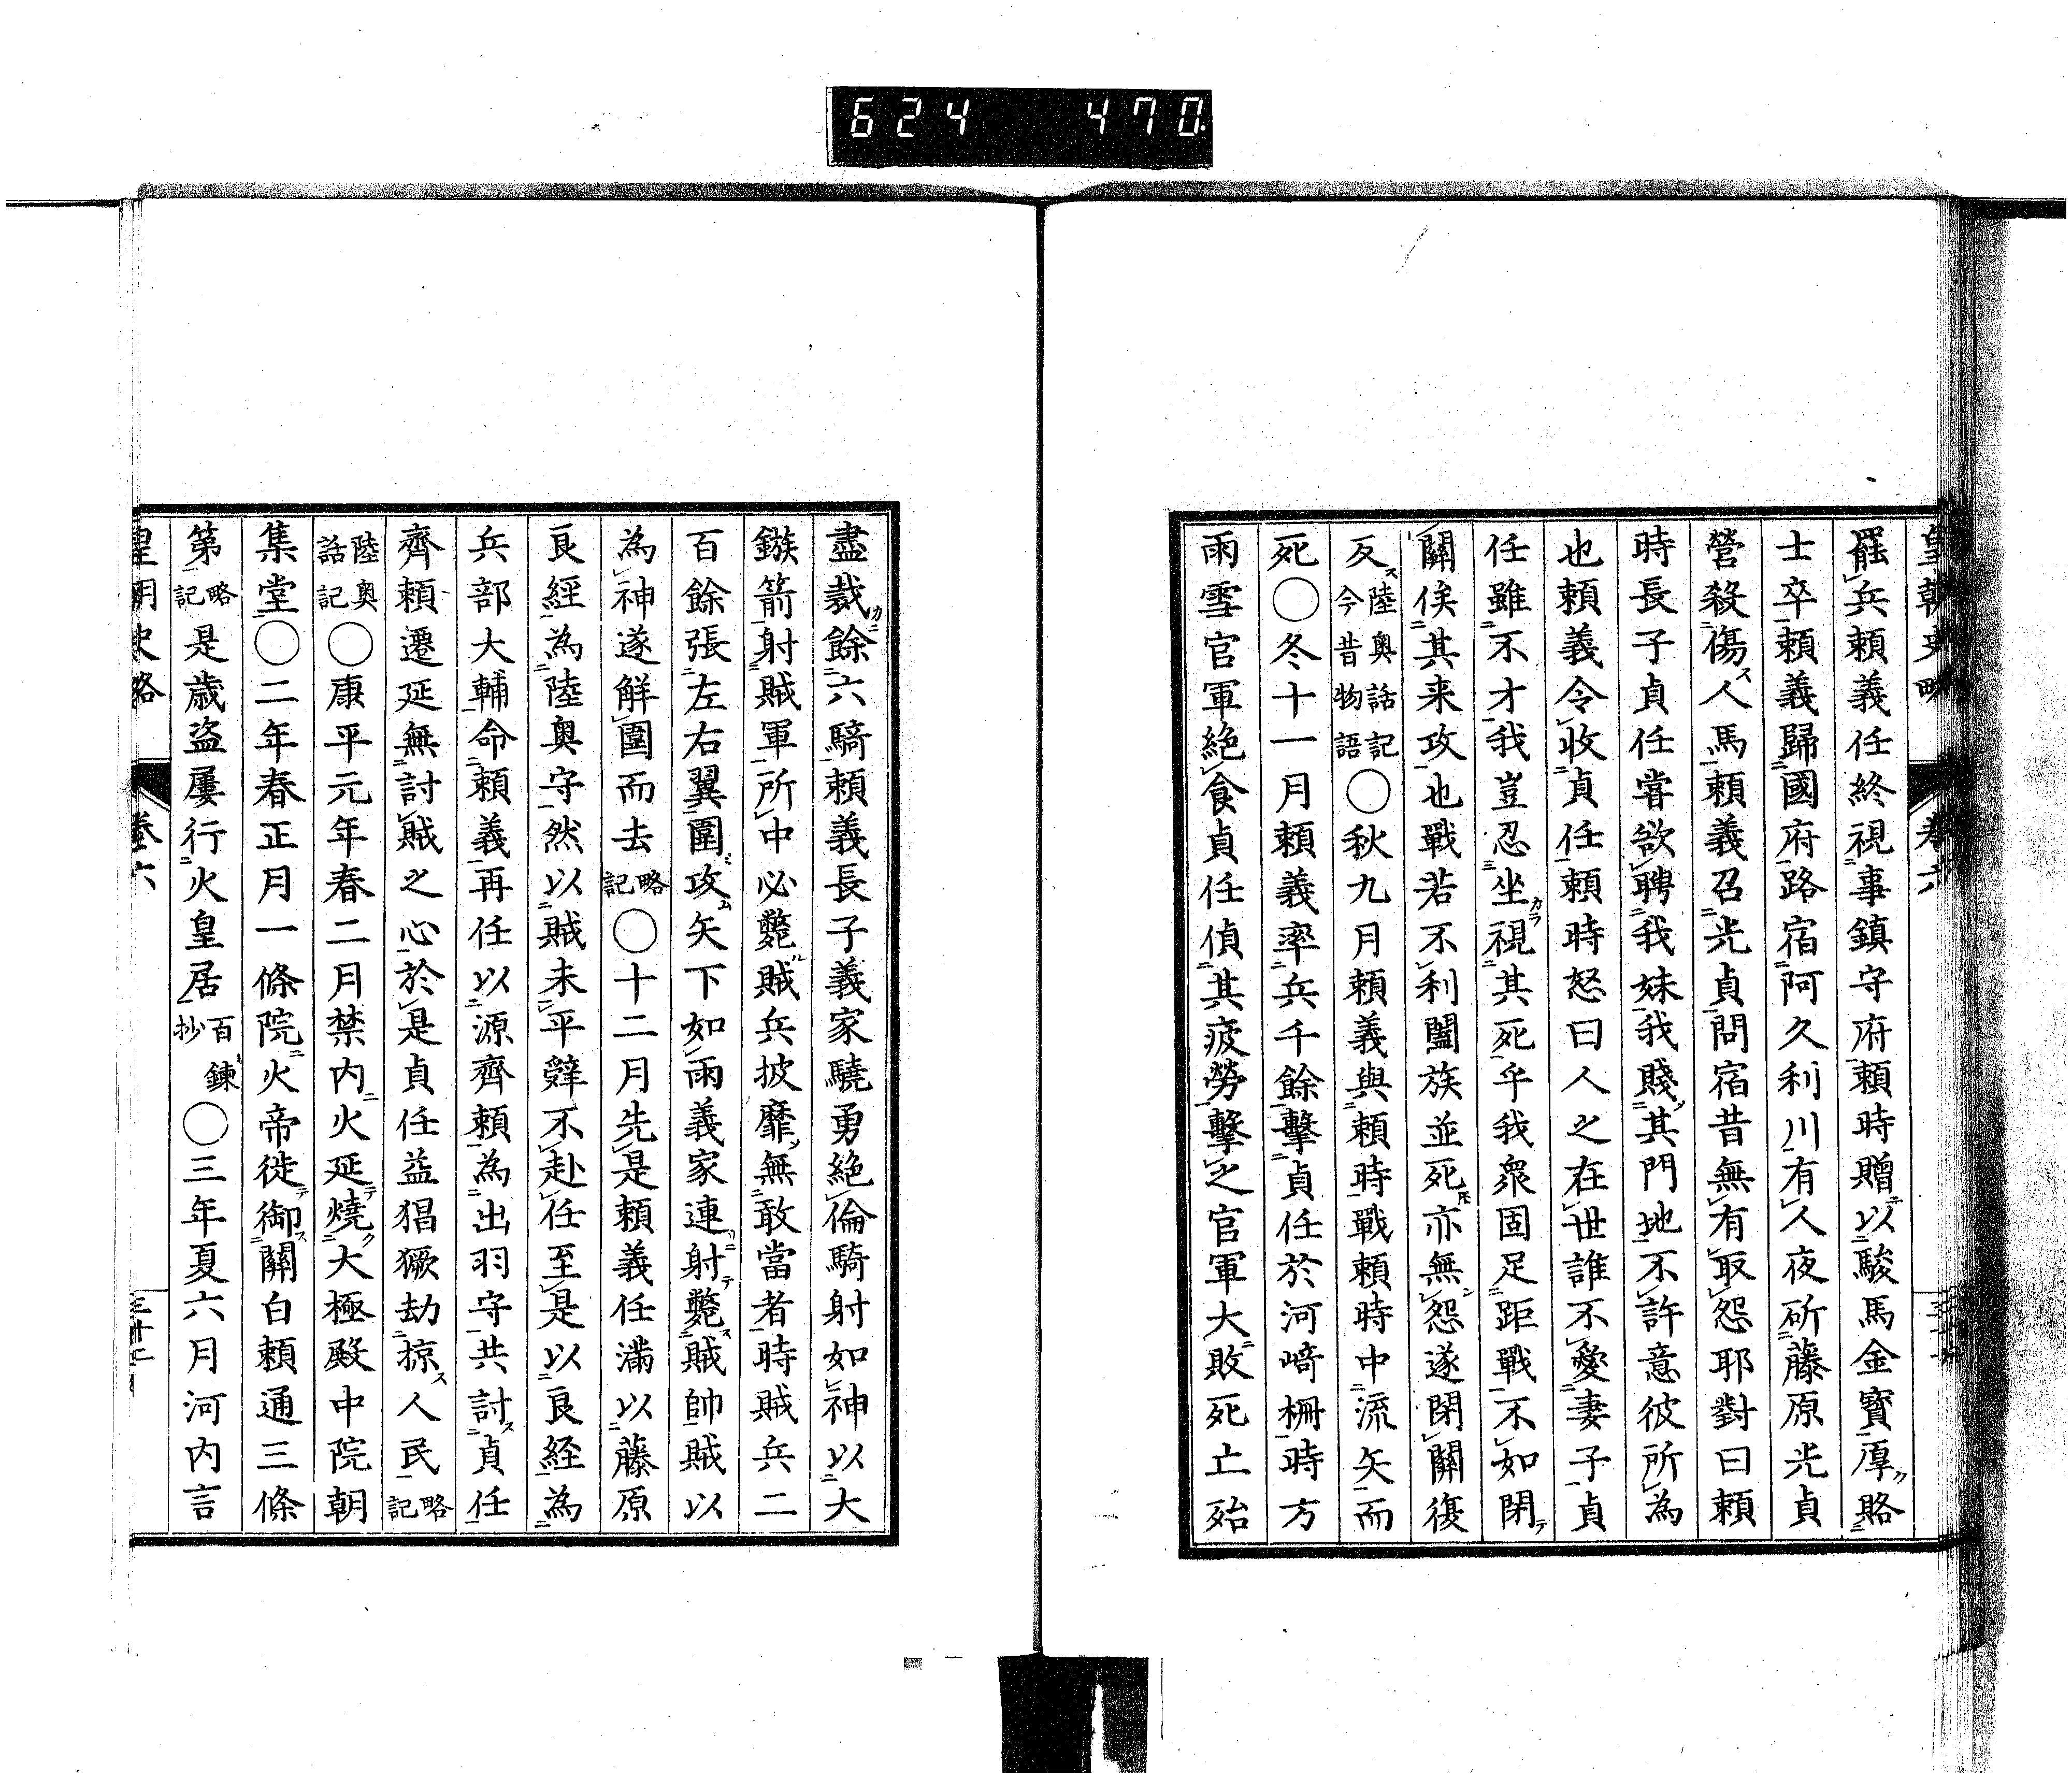 624 470
皇朝史略 卷六
罷兵頼義任終視事鎮守府頼時贈以駿馬金寶厚賂
士卒頼義歸國府路宿阿久利川有人夜斫藤原光貞
營殺傷人馬頼義召光貞問宿昔無有取怨耶對曰頼
時長子貞任嘗欲聘我妹我賤其門地不許意彼所為
也頼義令收貞任頼時怒曰人之在世誰不愛妻子貞
任雖不才我豈忍坐視其死乎我眾固足距戰不如閉
關俟其来攻也戰若不利闔族並死亦無怨遂閉關復
反陸奥話記今昔物語〇秋九月頼義與頼時戰頼時中流矢而
死〇冬十一月頼義率兵千餘擊貞任於河﨑柵時方
雨雪官軍絶食貞任偵其疲勞擊之官軍大敗死亡殆
盡裁餘六騎頼義長子義家驍勇絶倫騎射如神以大
鏃箭射賊軍所中必斃賊兵披靡無敢當者時賊兵二
百餘張左右翼圍攻矢下如雨義家連射斃賊帥賊以
為神遂解圍而去略記〇十二月先是頼義任滿以藤原
良經為陸奥守然以賊未平辭不赴任至是以良経為
兵部大輔命頼義再任以源齊頼為出羽守共討貞任
齊頼遷延無討賊之心於是貞任益猖獗劫掠人民略記
陸奥話記〇康平元年春二月禁内火延燒大極殿中院朝
集堂〇二年春正月一條院火帝徙御關白頼通三條
第略記是歳盗屢行火皇居百鍊抄〇三年夏六月河内言
皇朝史略 卷六 三十二